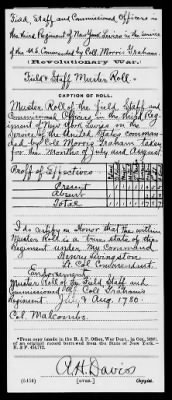 Field, Staff and Commissioned Officers in
the third Regiment of New York Levies in the service
of the U.S. Commanded by Coll. Morris Graham.
(Revolutionary War.)
Field & Staff Muster Roll.
CAPTION OF ROLL.
Muster Roll of the Field Staff and
Commissioned Officers in the third Reg-
iment of New York Levies in the
Service of the United States comman-
ded by Coll Morris Graham taken
for the months of July and August
Proff of Effectives
Present
Absent
Total
I do certify on Honor that the within
Muster Roll is a true state of the
Regiment under my Command
Henry Livingston
Lt. Col. Commandant
Endorsement
Muster Roll of the Field Staff and
Commissioned Off. Coll Grahams
Regiment July & Aug. 1780.
Col. Malcombs.
*From copy (made in the R. & P. Office, War Dept., in
of an original record borrowed from the State of New York.—
R. & P.
A. H. Davis
[OVER.] Copyist.